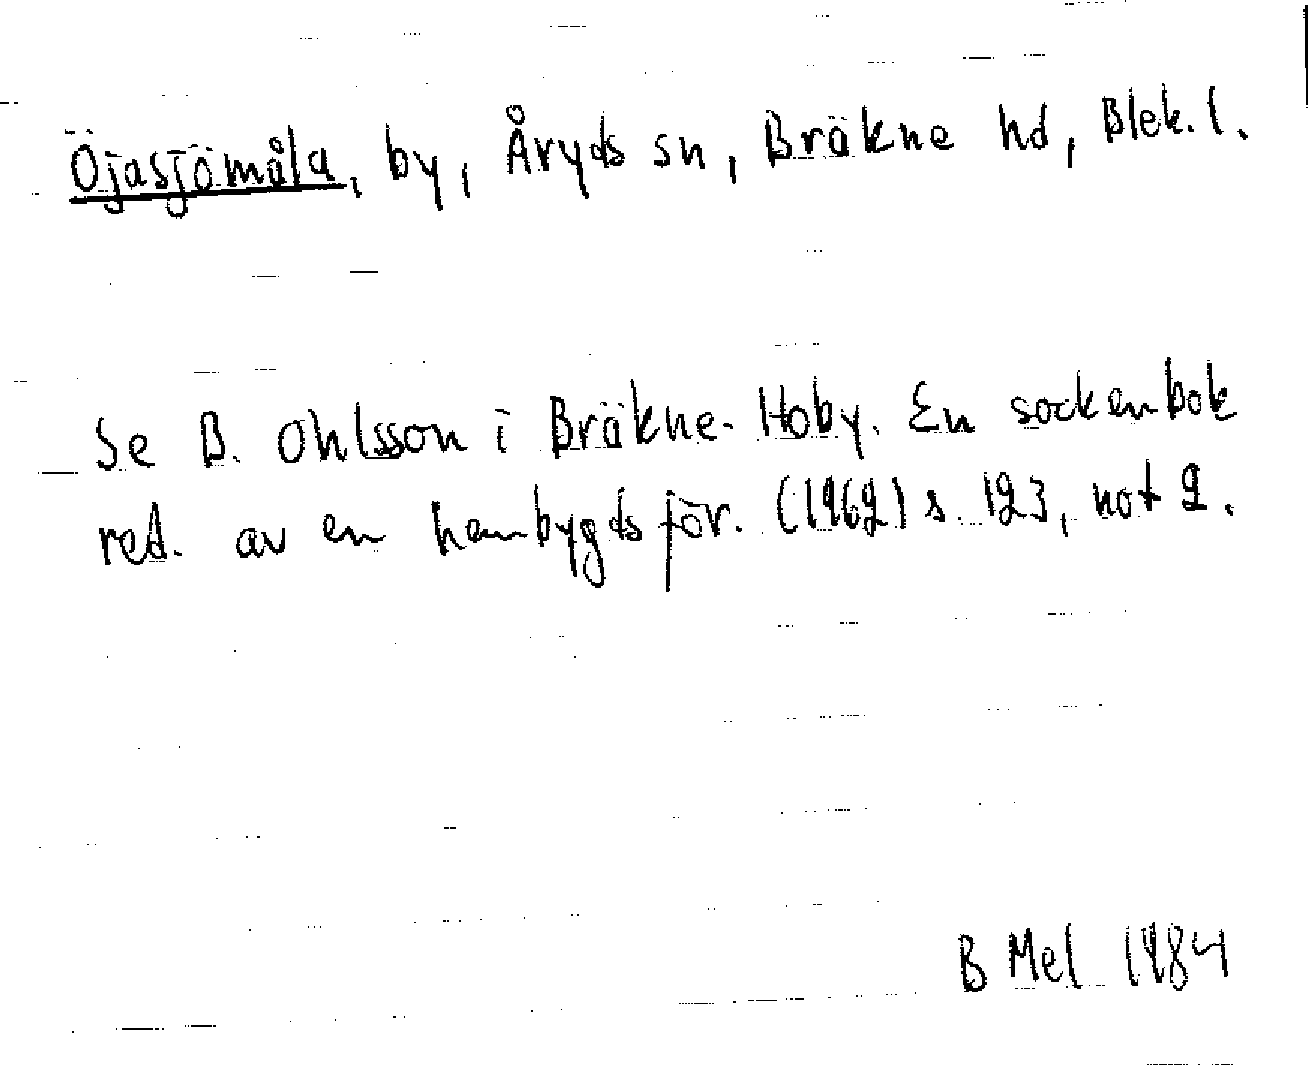 Öjasjömåla, by, Åryds sn, Bräkne hd, Blek. l.
Se B. Ohlsson i Bräkne-Hoby. En sockenbok
red. av en hembygdsför. (1962) s. 123, not 2.
B Mel 1984